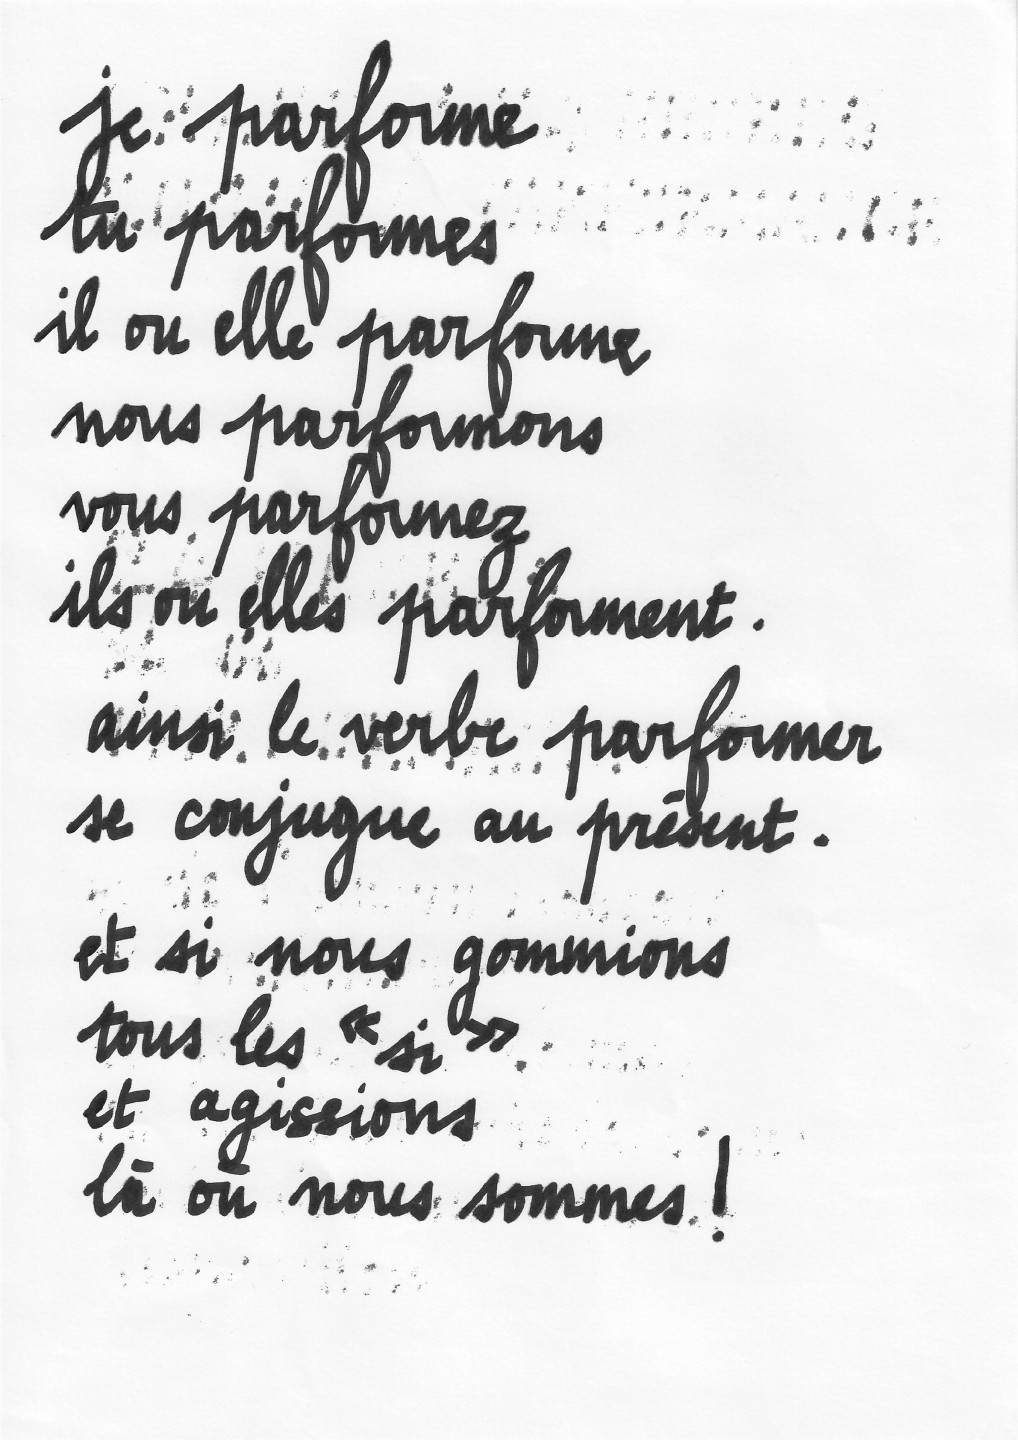 je parforme
tu parformes
il ou elle parforme
nous parformons
vous parformez
ils ou elles parforment.
ainsi le verbe parformer
se conjugue au présent.
et si nous gommions
tous les "si"
et agissions
là où nous sommes !